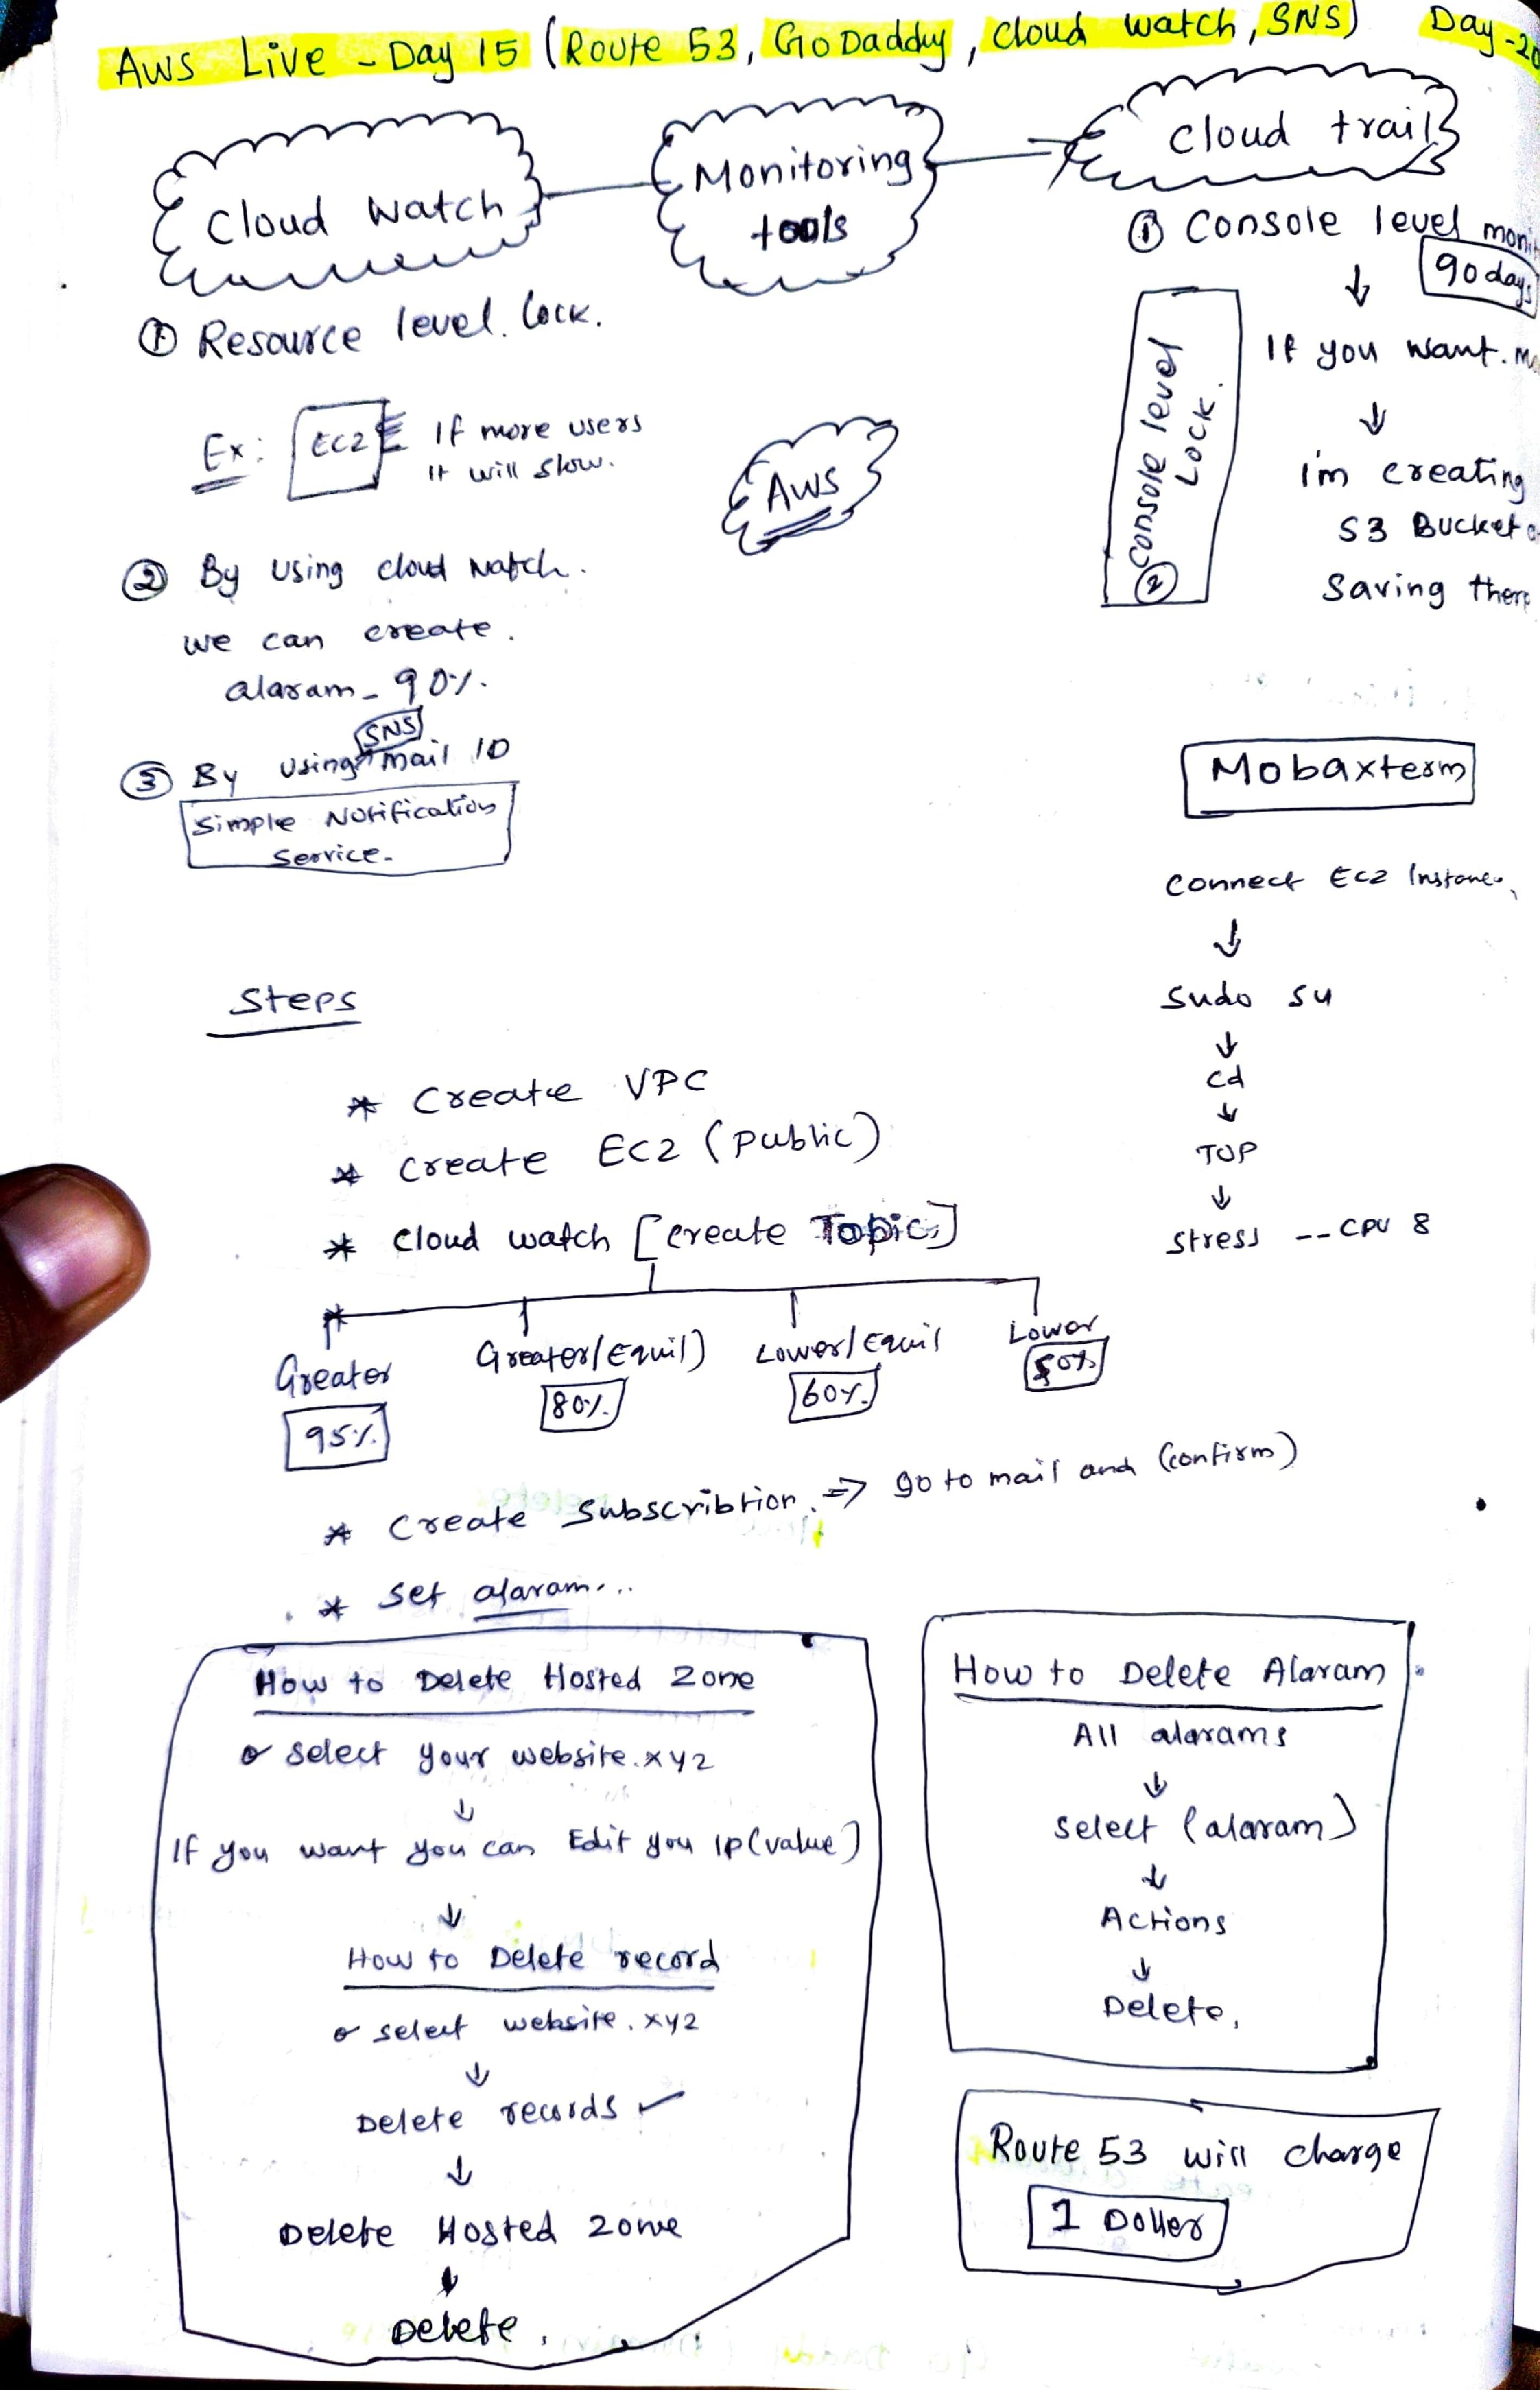 Aws Live - Day 15 (Route 53, GoDaddy, cloud watch, SNS) Day-20
Cloud Watch
Monitoring
tools
Cloud trail
① Resource level. Lock.
Ex: EC2 If more users
It will slow.
② By using cloud watch.
we can create.
alaram - 90%.
SNS
③ By using mail ID
Simple Notification
Service.
AWS
① Console level
90 days
↓
If you want.
↓
i'm creating
S3 Bucket
Saving there
② Console level
Lock.
Mobaxterm
Connect EC2 Instance,
↓
Sudo su
↓
cd
↓
TOP
↓
Stress --CPU 8
Steps
* Create VPC
* Create EC2 (Public)
* Cloud watch [create Topic]
Greater
95%.
Greater/Equil)
80%.
Lower/Equil
60%.
Lower
* Create Subscribtion. => go to mail and (confirm)
* Set alaram...
How to Delete Hosted Zone
o select your website.xyz
↓
If you want you can Edit you IP(value)
↓
How to Delete record
o select website.xyz
↓
Delete records ✓
↓
Delete Hosted Zone
↓
Delete.
How to Delete Alaram
All alarams
↓
Select (alaram)
↓
Actions
↓
Delete,
Route 53 will charge
1 Doller